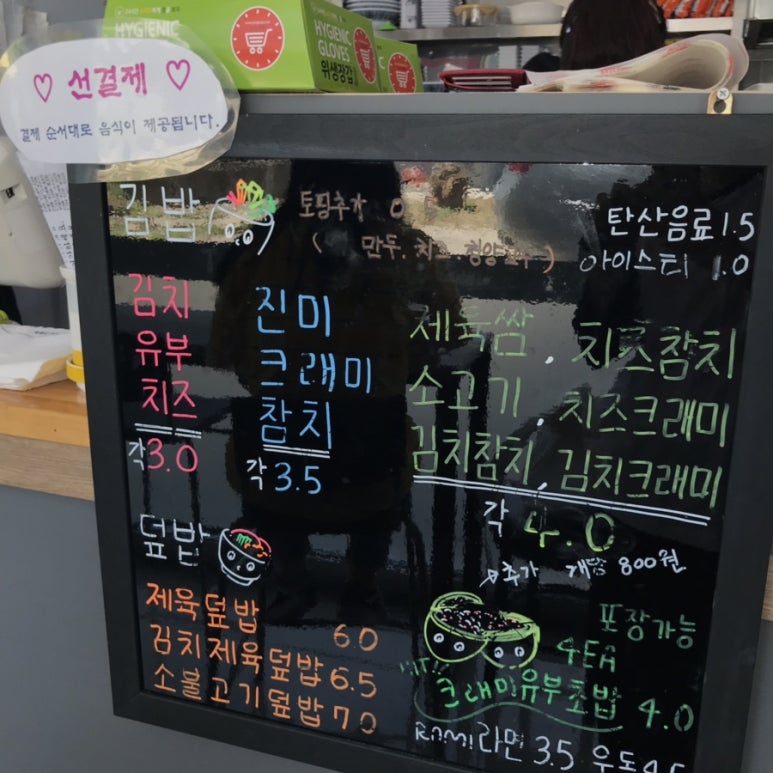 HYGIENIC
HYGIENIC
GLOVES
위생장갑
♡ 선결제 ♡
결제 순서대로 음식이 제공됩니다.
김밥
토핑추가
( 만두. 치즈. )
탄산음료 1.5
아이스티 1.0
김치
유부
치즈
각 3.0
진미
크래미
참치
각 3.5
체육쌈, 치즈참치
소고기, 치즈크래미
김치참치, 김치크래미
각 4.0
추가 개당 800원
덮밥
제육덮밥 6.0
김치제육덮밥 6.5
소불고기덮밥 7.0
포장가능
4EA
HIT!!
크래미유부초밥 4.0
라면 3.5 우동 4.5